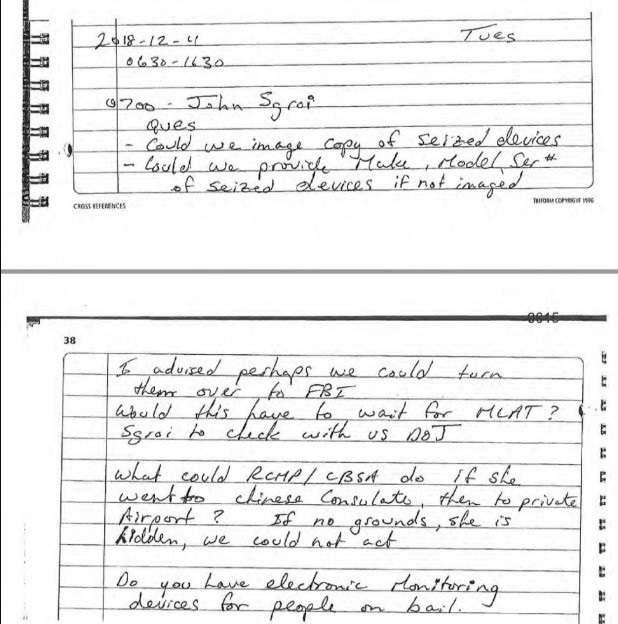 2018-12-4 Tues
0630-1630
0700 - John Sgroi
Ques
- Could we image copy of seized devices
- Could we provide Make, Model, Ser #
of seized devices if not imaged
CROSS REFERENCES TRIFORM COPYRIGHT 1996
38
I advised perhaps we could turn
them over to FBI
Would this have to wait for MLAT?
Sgroi to check with US DOJ
What could RCMP/CBSA do if she
went to chinese Consulate, then to private
Airport? If no grounds, she is
hidden, we could not act
Do you have electronic Monitoring
devices for people on bail.